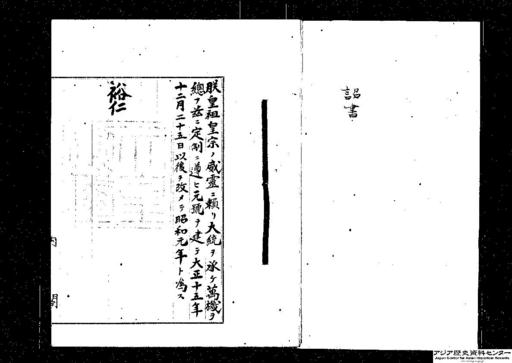 詔書
朕皇祖皇宗ノ威靈ニ賴リ大統ヲ承ケ萬機ヲ
總フ茲ニ定制ニ遵ヒ元號ヲ建テ大正十五年
十二月二十五日以後ヲ改メテ昭和元年ト爲ス
裕仁
内閣
アジア歴史資料センター
Japan Center for Asian Historical Records